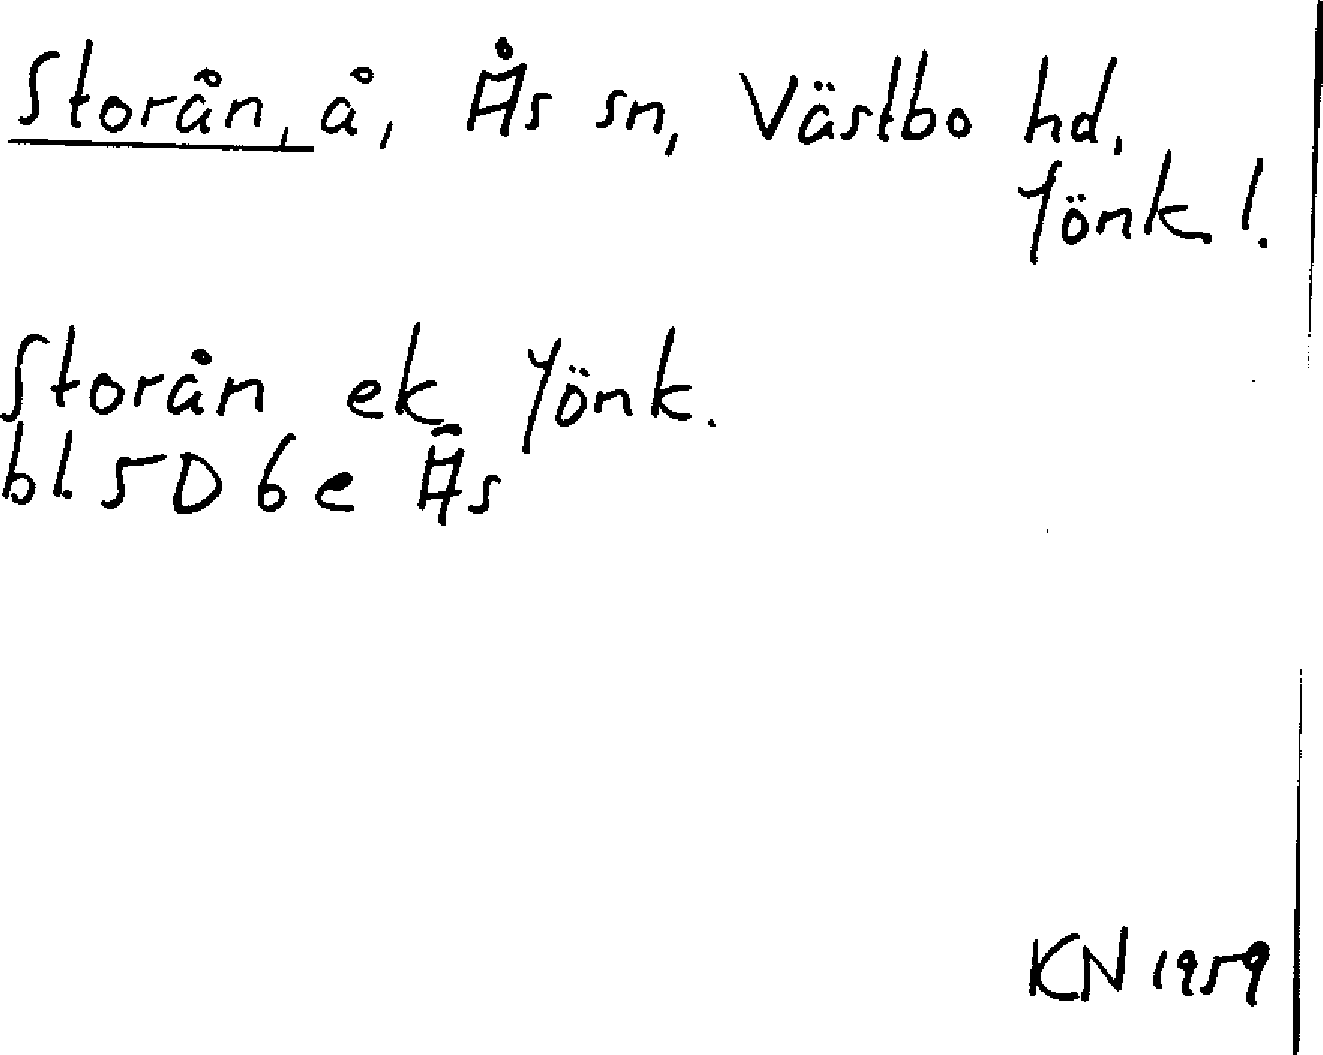 Storån, å, Ås sn, Västbo hd,
Jönk l.
Storån ek Jönk.
bl. 5D6e Ås
KN 1959